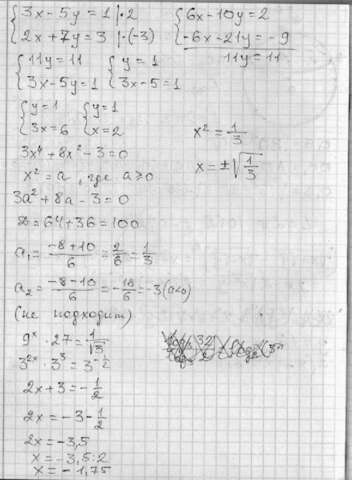 {3x-5y=1 |·2
{2x+7y=3 |·(-3)
{6x-10y=2
{-6x-21y=-9
11y=11
{11y=11 {y=1
{3x-5y=1 {3x-5=1
{y=1 {y=1
{3x=6 {x=2
x²=1/3
x=±√(1/3)
3x⁴+8x²-3=0
x²=a, где a≥0
3a²+8a-3=0
D=64+36=100
a₁=(-8+10)/6=2/6=1/3
a₂=(-8-10)/6=-18/6=-3(a<0)
(не подходит)
9ˣ·27=1/√3
3²ˣ·3³=3^-½
2x+3=-1/2
2x=-3-1/2
2x=-3,5
x=-3,5:2
x=-1,75